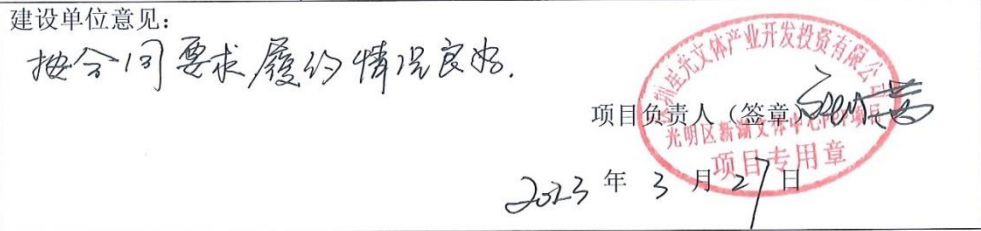 建设单位意见：
按合同要求履约情况良好.
项目负责人（签章）
深圳星光文体产业开发投资有限公司
光明区新湖文体中心PPP项目
项目专用章
2023年3月27日